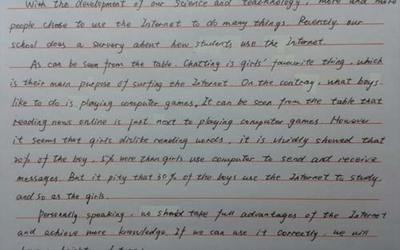 With the development of our science and teachnology, more and more
people choose to use the Internet to do many things. Recently, our
school does a survery about how students use the Internet.
As can be seen from the table. Chatting is girls' favourite thing, which
is their main purpose of surfing the Internet. On the contray, what boys
like to do is playing computer games. It can be seen from the table that
reading news online is just next to playing computer games. However
it seems that girls dislike reading words, it is vividly showed that
20% of the boy, 5% more than girls use computer to send and receive
messages. But it pity that 30% of the boys use the Internet to study
and so as the girls.
Personally speaking, we should take full advantages of the Internet
and achieve more knowledge. If we can use it correctly, we will